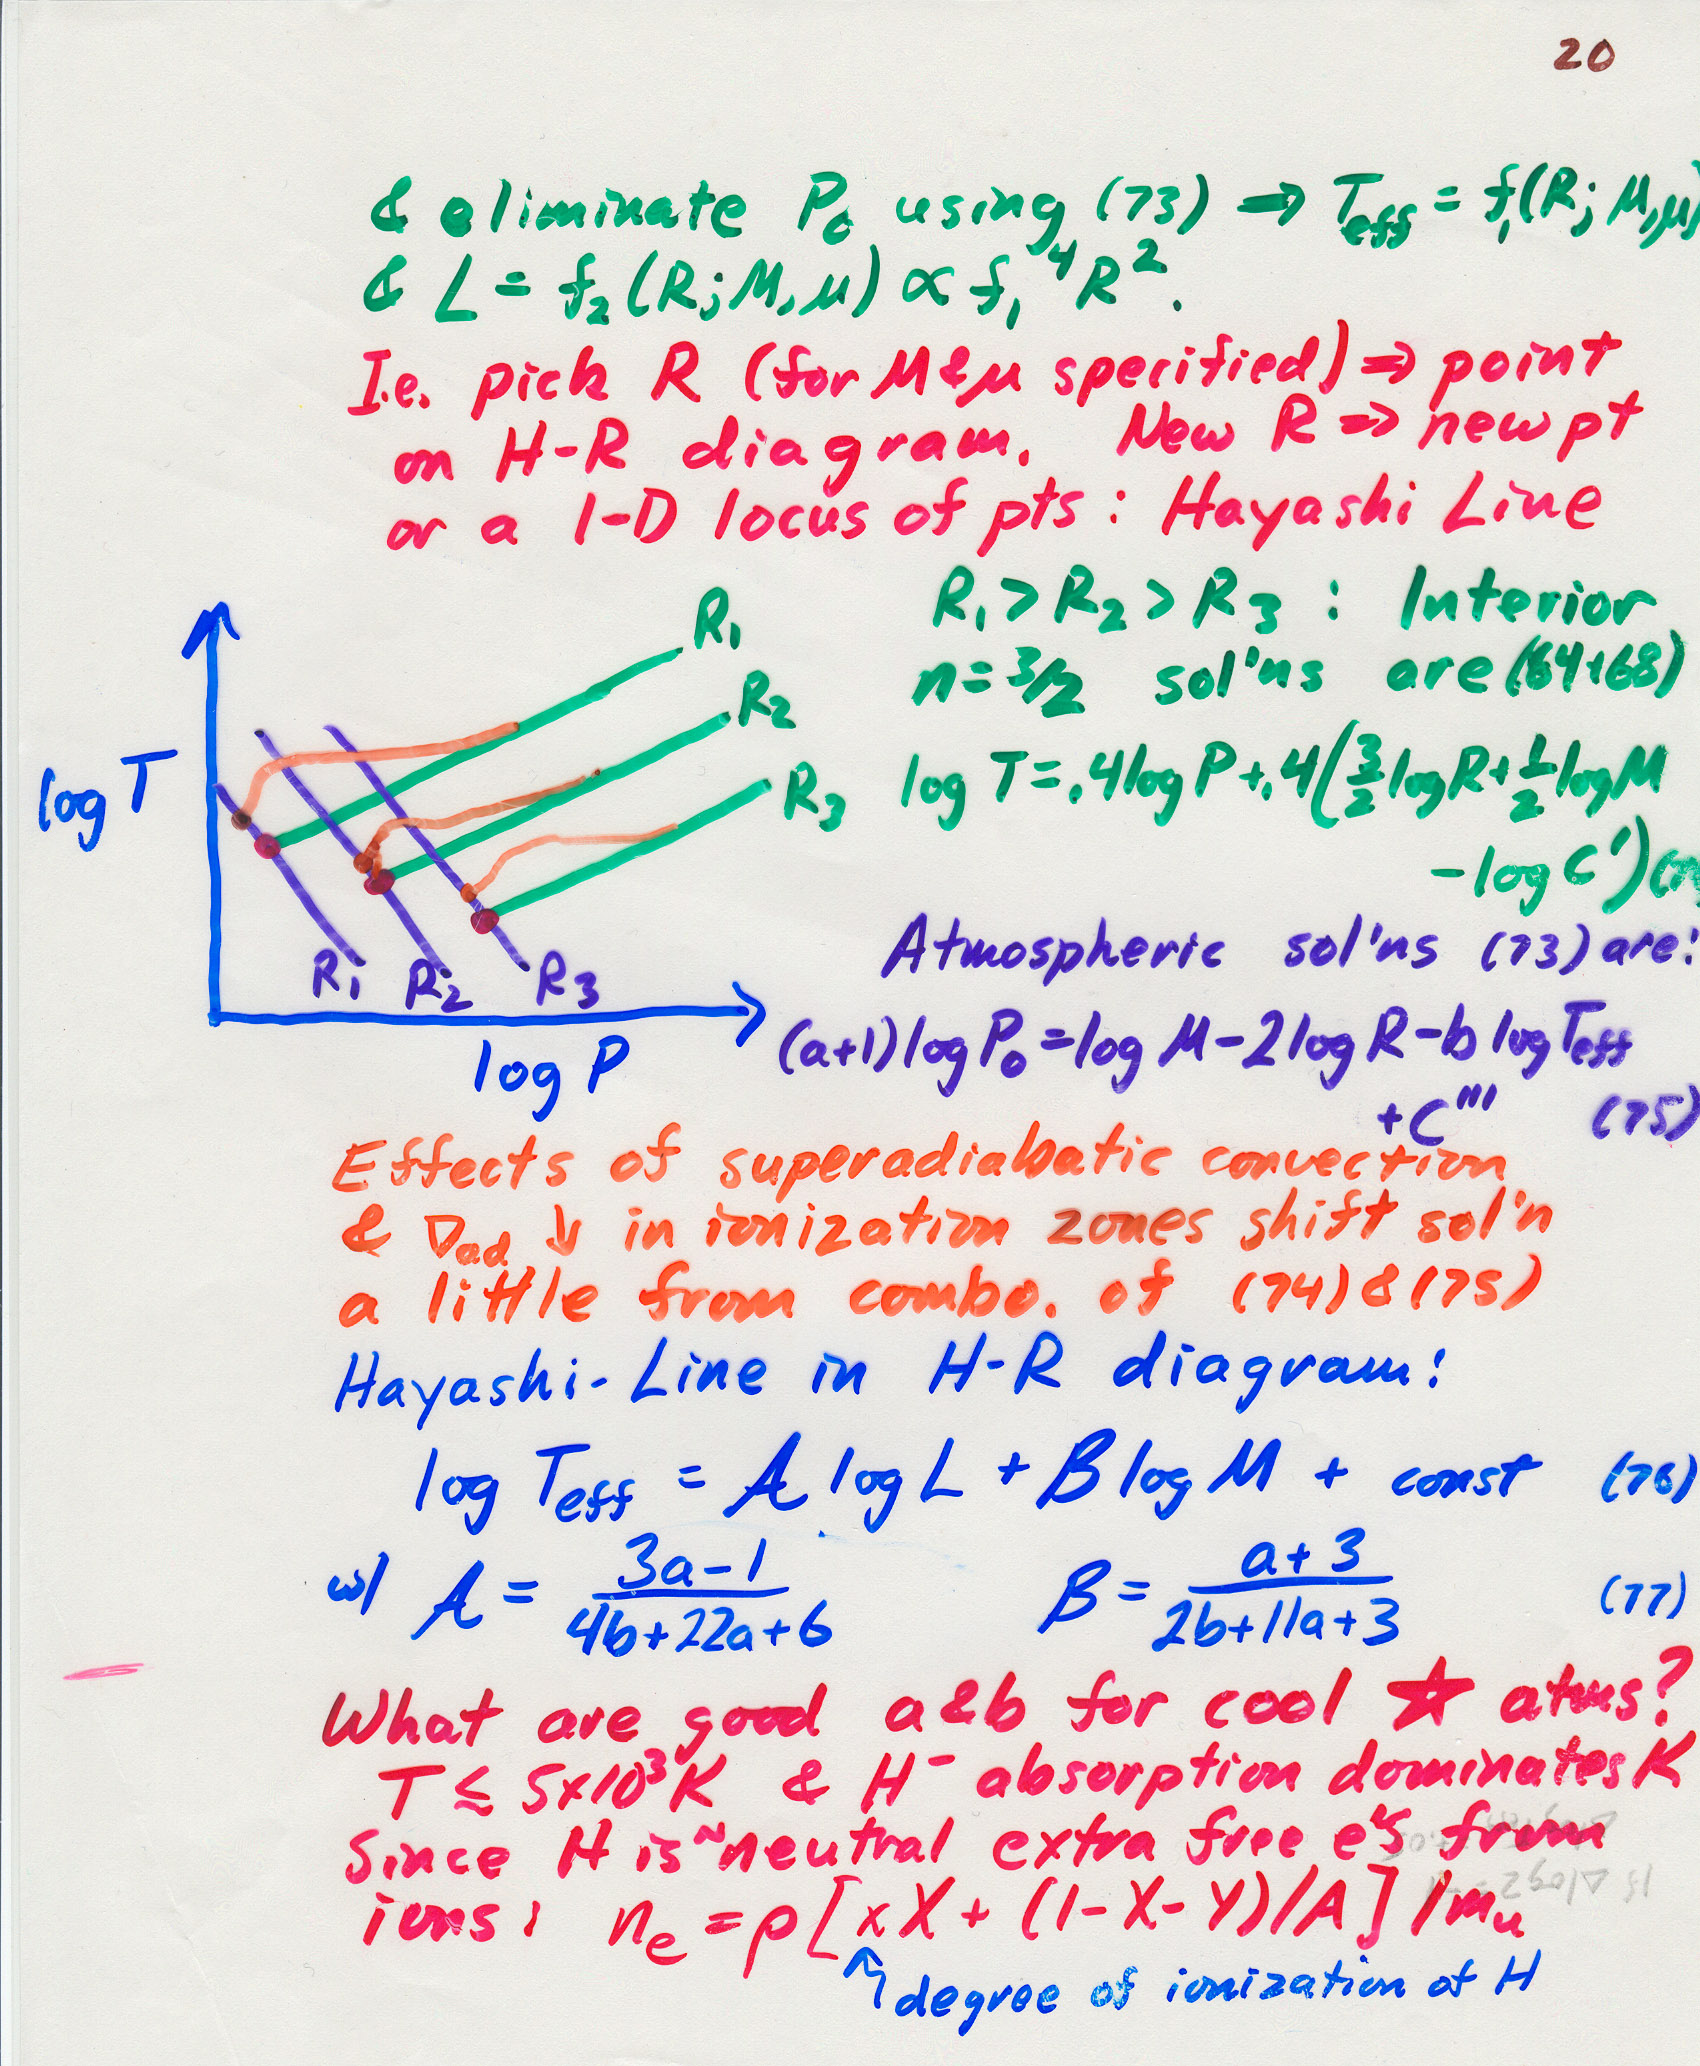 20
& eliminate P₀ using (73) ⇒ T_eff = f₁(R; M, μ)
& L = f₂(R; M, μ) ∝ f₁⁴R².
I.e. pick R (for M & μ specified) ⇒ point
on H-R diagram. New R ⇒ new pt
or a 1-D locus of pts : Hayashi Line
R₁ > R₂ > R₃ : Interior
n = 3/2 sol'ns are (64+68)
log T = .4 log P + .4(3/2 log R + 1/2 log M
- log C')
R₁
R₂
R₃
log T
R₁ R₂ R₃
log P
Atmospheric sol'ns (73) are:
(a+1) log P₀ = log M - 2 log R - b log T_eff
+ C''' (75)
Effects of superadiabatic convection
& ∇ad ↓ in ionization zones shift sol'n
a little from combo. of (74) & (75)
Hayashi-Line in H-R diagram:
log T_eff = A log L + B log M + const (76)
w/ A = (3a-1)/(4b+22a+6) B = (a+3)/(2b+11a+3) (77)
What are good a & b for cool ☆ atms?
T ≲ 5×10³K & H⁻ absorption dominates K
Since H is ~neutral extra free e⁻'s from
ions: n_e = ρ[xX + (1-X-Y)/A]/m_u
degree of ionization of H